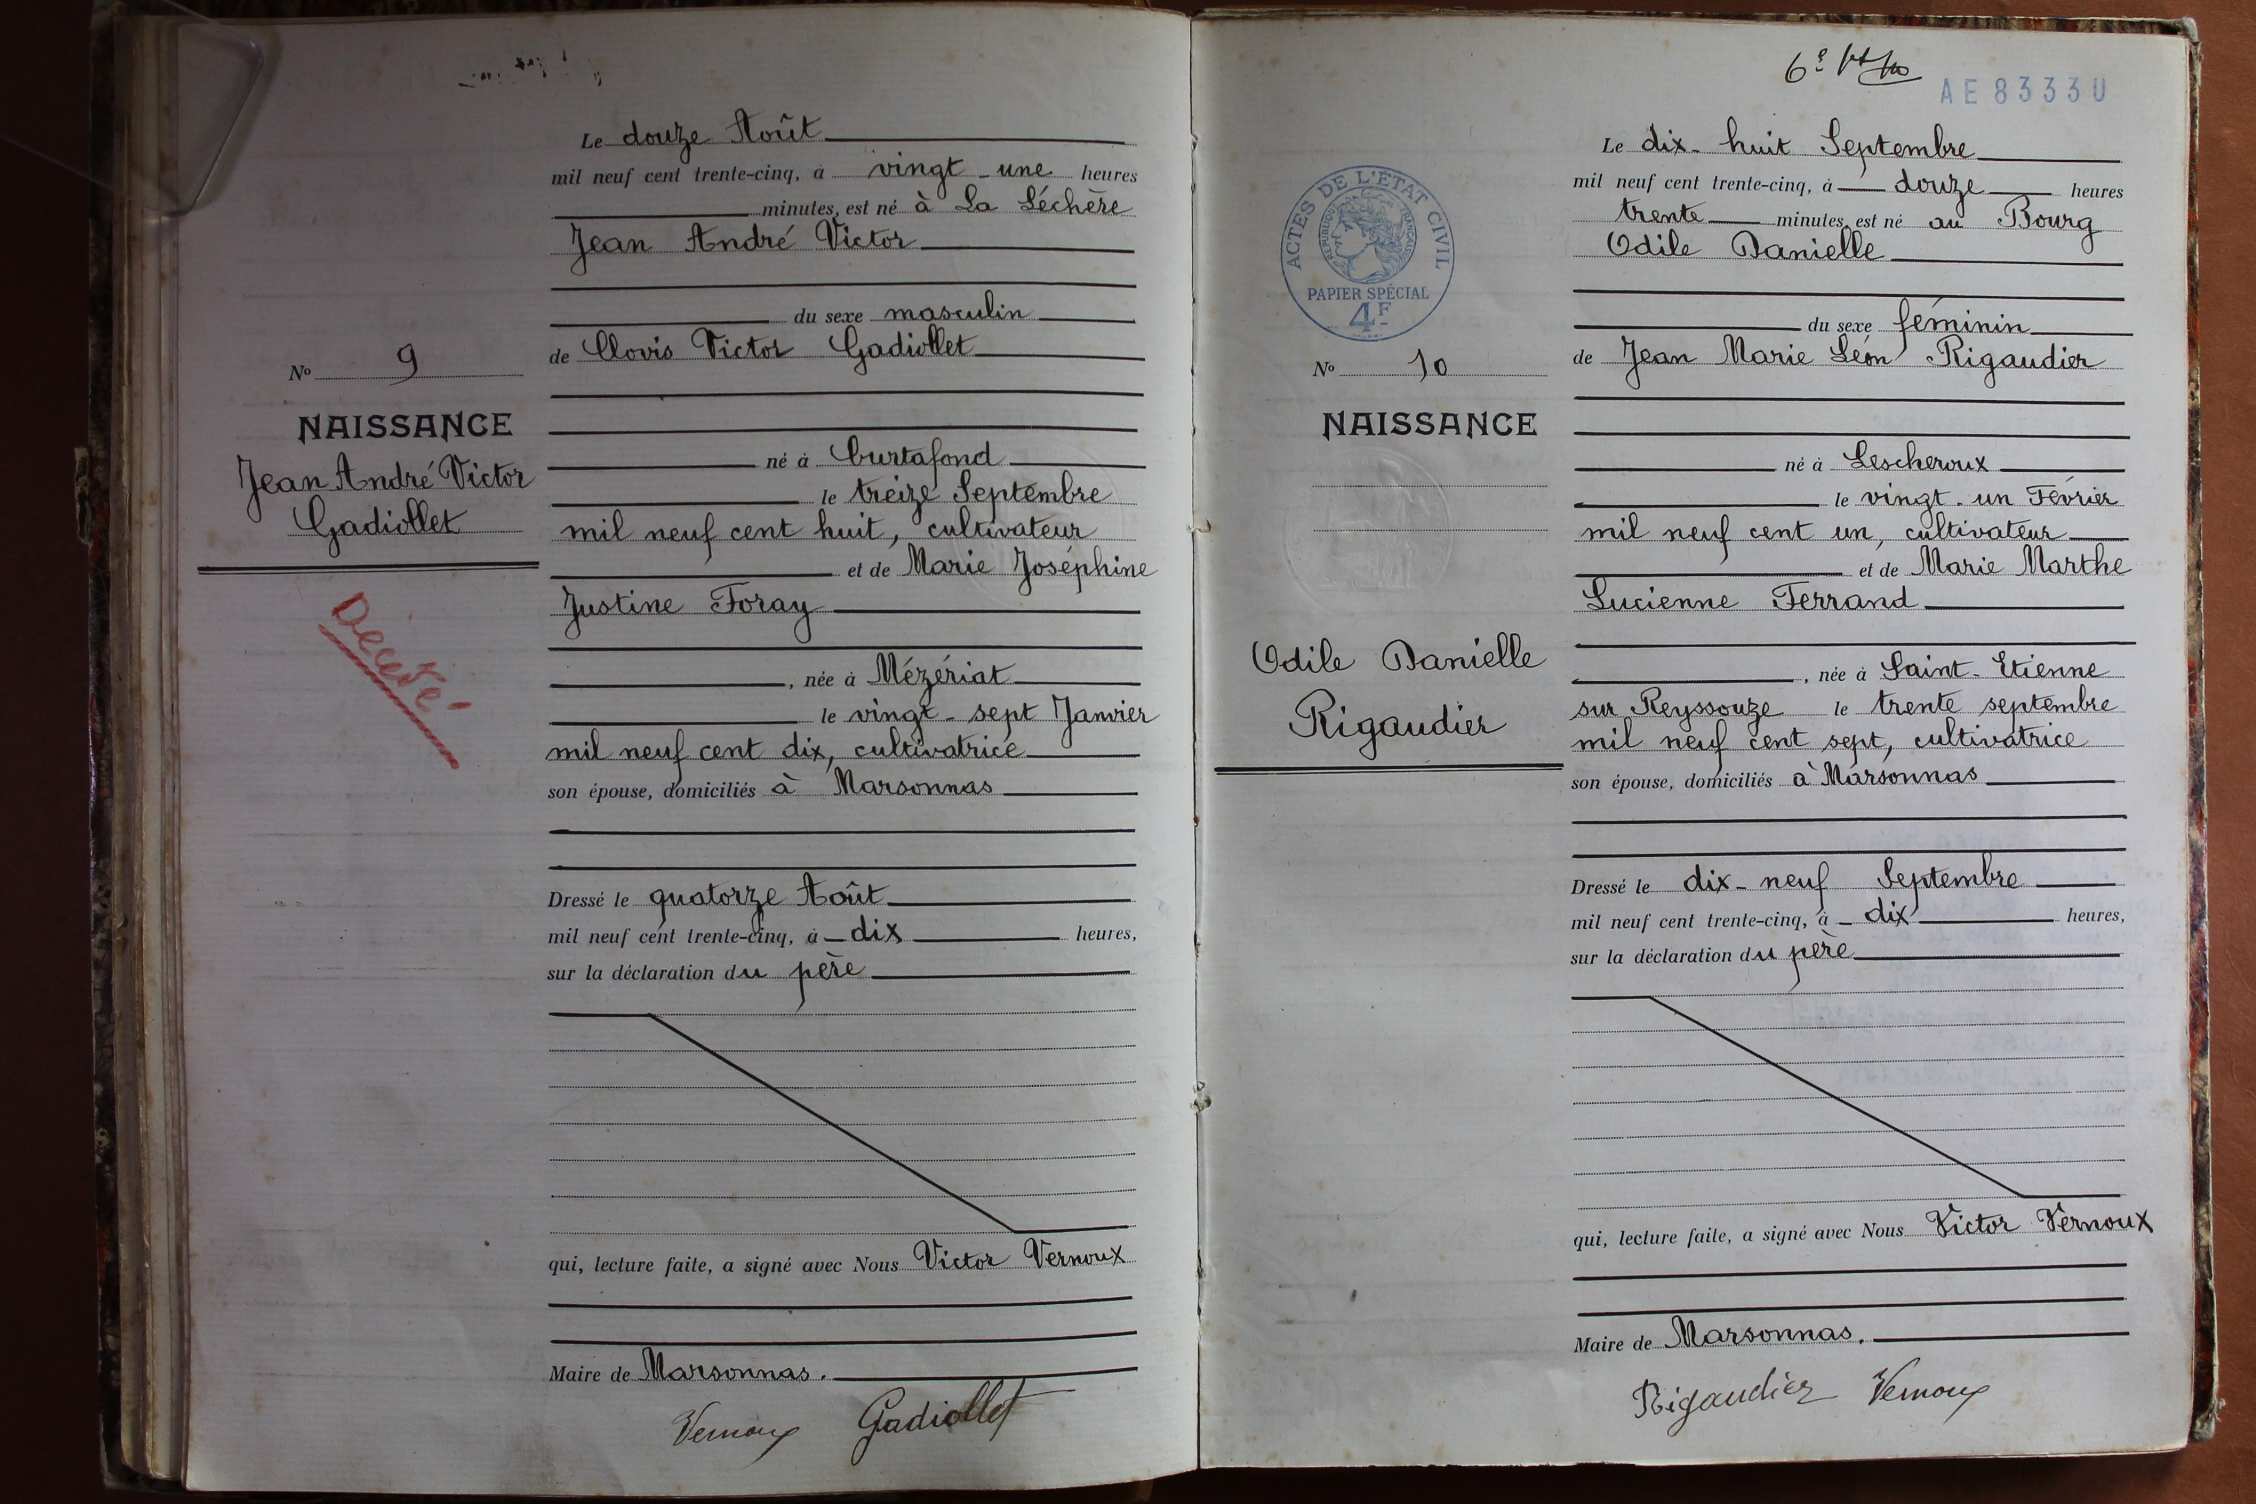 Le douze Août
mil neuf cent trente-cinq, à vingt-une heures
minutes, est né à La Léchère
Jean André Victor
du sexe masculin
de Clovis Victor Gadiollet
né à Curtafond
le treize Septembre
mil neuf cent huit, cultivateur
et de Marie Joséphine
Justine Foray
, née à Mézériat
le vingt-sept Janvier
mil neuf cent dix, cultivatrice
son épouse, domiciliés à Marsonnas
Dressé le quatorze Août
mil neuf cent trente-cinq, à dix heures,
sur la déclaration du père
qui, lecture faite, a signé avec Nous Victor Vernoux
Maire de Marsonnas.
Vernoux Gadiollet
No 9
NAISSANCE
Jean André Victor
Gadiollet
Décédé
6e
AE 83330
Le dix-huit Septembre
mil neuf cent trente-cinq, à douze heures
trente minutes, est né au Bourg
Odile Danielle
du sexe féminin
de Jean Marie Léon Rigaudier
né à Lescheroux
le vingt-un Février
mil neuf cent un, cultivateur
et de Marie Marthe
Lucienne Ferrand
, née à Saint-Etienne
sur Reyssouze le trente septembre
mil neuf cent sept, cultivatrice
son épouse, domiciliés à Marsonnas
Dressé le dix-neuf Septembre
mil neuf cent trente-cinq, à dix heures,
sur la déclaration du père
qui, lecture faite, a signé avec Nous Victor Vernoux
Maire de Marsonnas.
Rigaudier Vernoux
ACTES DE L'ÉTAT CIVIL
RÉPUBLIQUE FRANÇAISE
PAPIER SPÉCIAL
4F
No 10
NAISSANCE
Odile Danielle
Rigaudier